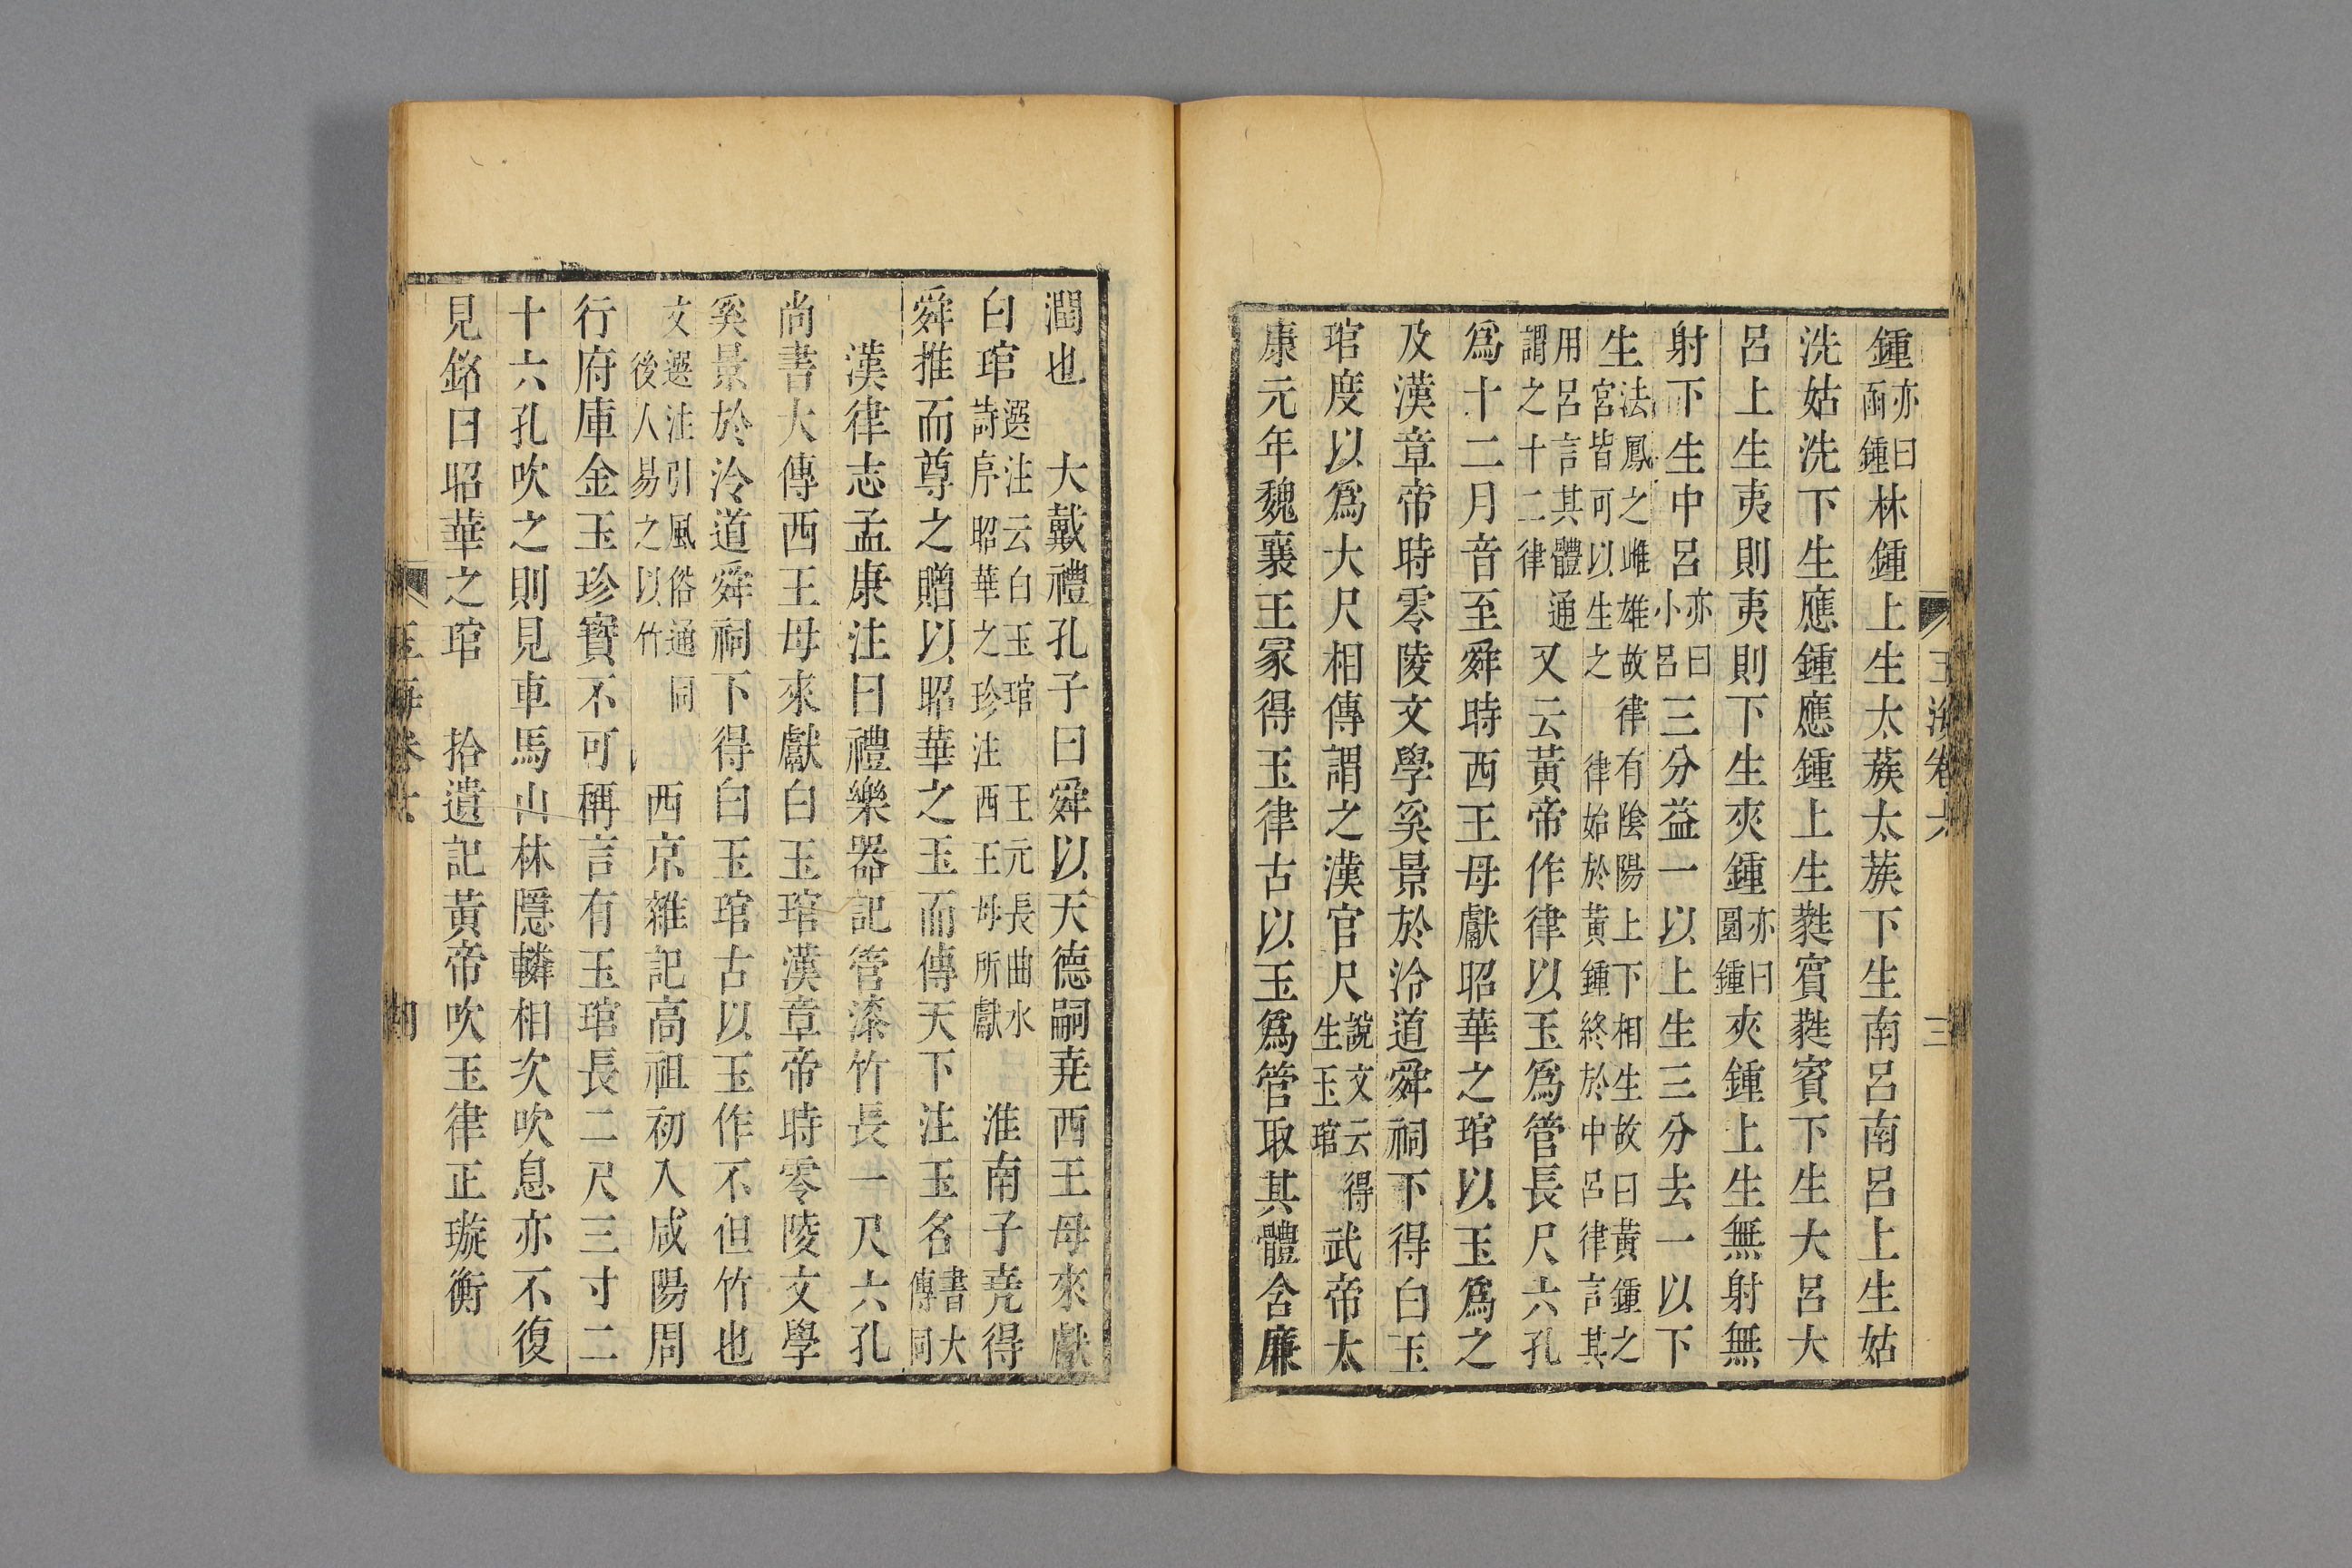 玉海卷六　三
鍾亦曰函鍾林鍾上生太蔟太蔟下生南呂南呂上生姑
洗姑洗下生應鍾應鍾上生蕤賓蕤賓下生大呂大
呂上生夷則夷則下生夾鍾亦曰圜鍾夾鍾上生無射無
射下生中呂亦曰小呂三分益一以上生三分去一以下
生法鳳之雌雄故律宮皆可以生之有陰陽上下相生故曰黃鍾之律始於黃鍾終於中呂律言其
用呂言其體通謂之十二律又云黃帝作律以玉爲管長尺六孔
爲十二月音至舜時西王母獻昭華之琯以玉爲之
及漢章帝時零陵文學奚景於泠道舜祠下得白玉
琯度以爲大尺相傳謂之漢官尺說文云得生玉琯武帝太
康元年魏襄王冢得玉律古以玉爲管取其體含廉
潤也　大戴禮孔子曰舜以天德嗣堯西王母來獻
白琯選注云白玉琯王元長曲水詩序昭華之珍注西王母所獻　淮南子堯得
舜推而尊之贈以昭華之玉而傳天下注玉名書大傳同
漢律志孟康注曰禮樂器記管漆竹長一尺六孔
尚書大傳西王母來獻白玉琯漢章帝時零陵文學
奚景於泠道舜祠下得白玉琯古以玉作不但竹也
文選注引風俗通同後人易之以竹　西京雜記高祖初入咸陽周
行府庫金玉珍寶不可稱言有玉琯長二尺三寸二
十六孔吹之則見車馬山林隱轔相次吹息亦不復
見銘曰昭華之琯　拾遺記黃帝吹玉律正璇衡
玉海卷六